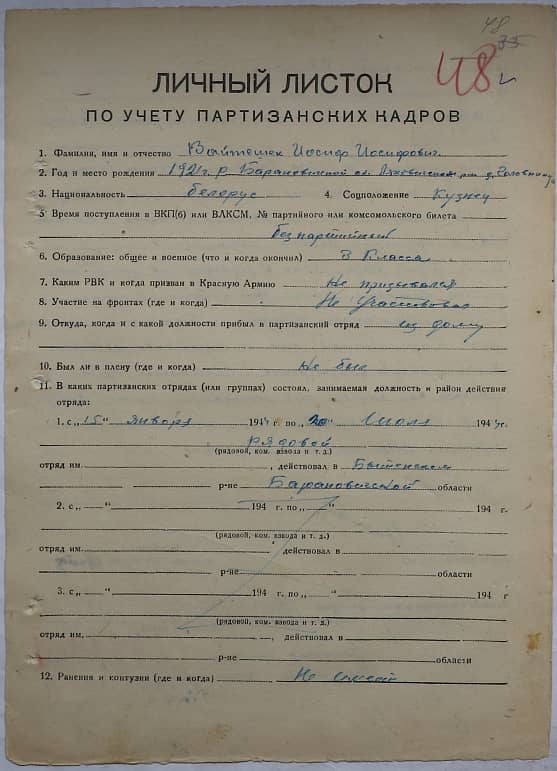 48
35
48
ЛИЧНЫЙ ЛИСТОК
ПО УЧЕТУ ПАРТИЗАНСКИХ КАДРОВ
1. Фамилия, имя и отчество Войтешек Иосиф Иосифович
2. Год и место рождения 1921 г. р. Барановичской
3. Национальность белорус 4. Соцположение Кузнец
5 Время поступления в ВКП(б) или ВЛКСМ, № партийного или комсомольского билета
безпартийный
6. Образование: общее и военное (что и когда окончил) 3 класса
7. Каким РВК и когда призван в Красную Армию Не призывался
8. Участие на фронтах (где и когда) Не участвовал
9. Откуда, когда и с какой должности прибыл в партизанский отряд из дому
10. Был ли в плену (где и когда) Не был
11. В каких партизанских отрядах (или группах) состоял, занимаемая должность и район действия
отряда:
1. с „15“ января 1944 г. по „20“ июля 1944 г.
рядовой
(рядовой, ком. взвода и т. д.)
отряд им. , действовал в Бытенском
р-не Барановичской области
2. с „ “ 194 г. по „ “ 194 г.
(рядовой, ком. взвода и т. д.)
отряд им. , действовал в
р-не области
3. с „ “ 194 г. по „ “ 194 г
(рядовой, ком. взвода и т. д.)
отряд им. , действовал в
р-не области
12. Ранения и контузии (где и когда) Не имел